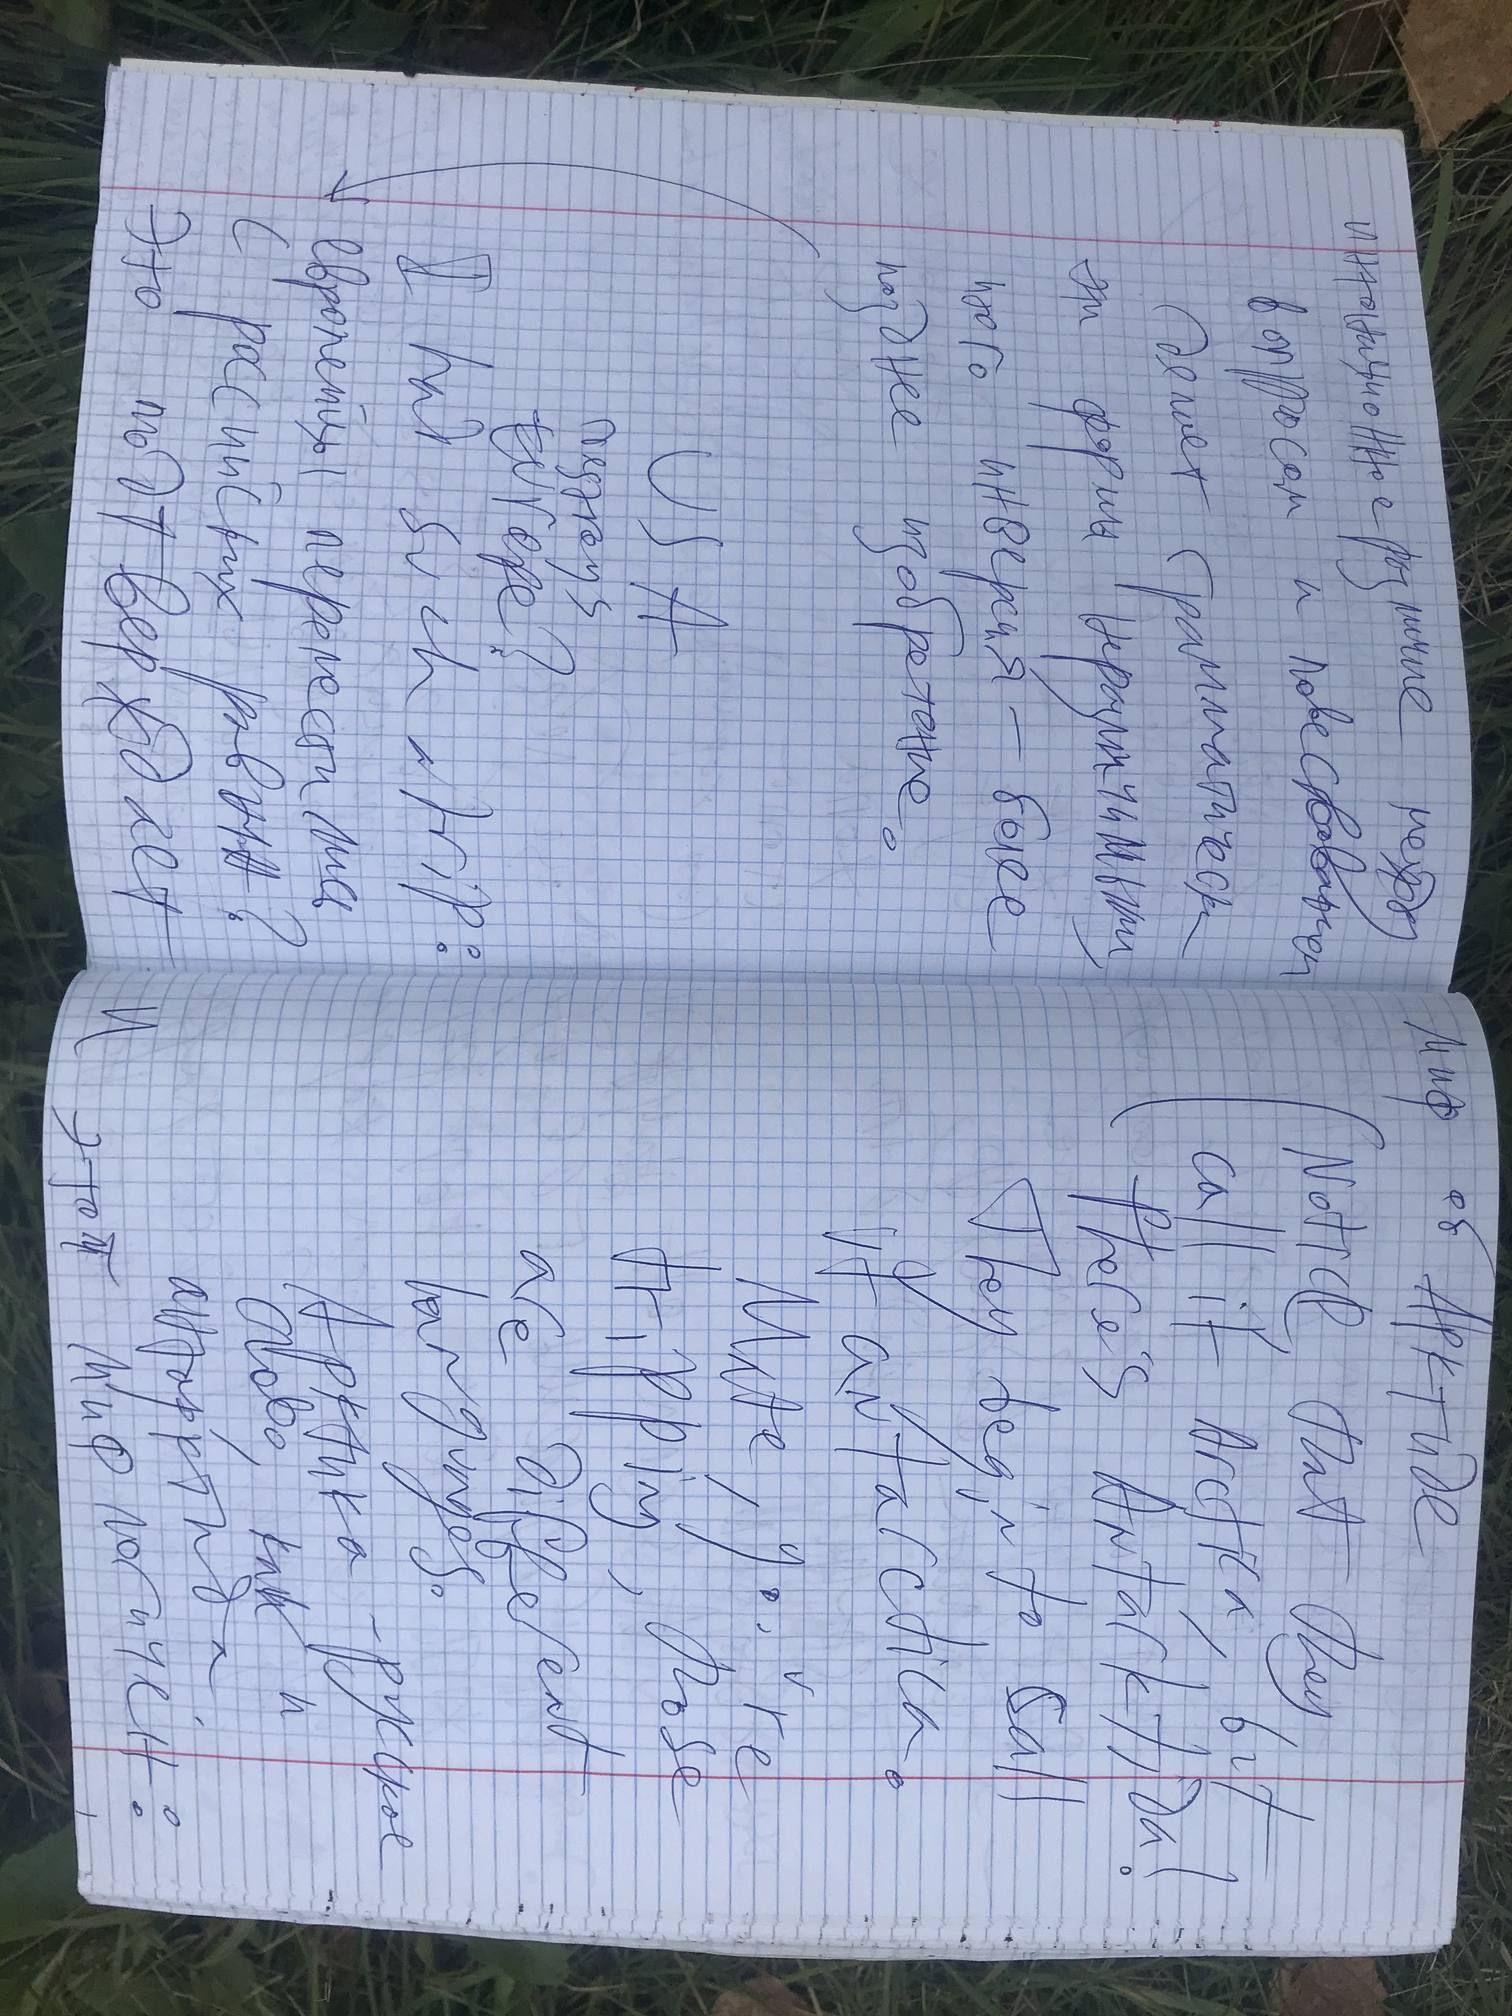 интонационное различие между
вопросом и повествованием
делает грамматически
эти формы неразличимыми
ного инверсия – более
позднее изобретение.
USA
поэтому
Europe?
I had such a trip:
европейцы перенесли
с российских равнин?
Это подтверждает
миф об Арктиде
(Notice that they
call it Arctica, but
there's Antarktida!
They begin to call
it antarctica.
Mate, y. 're
tripping, those
are different
languages.
Арктика - русское
слово, как и
антарктида.
И этот миф логичен: